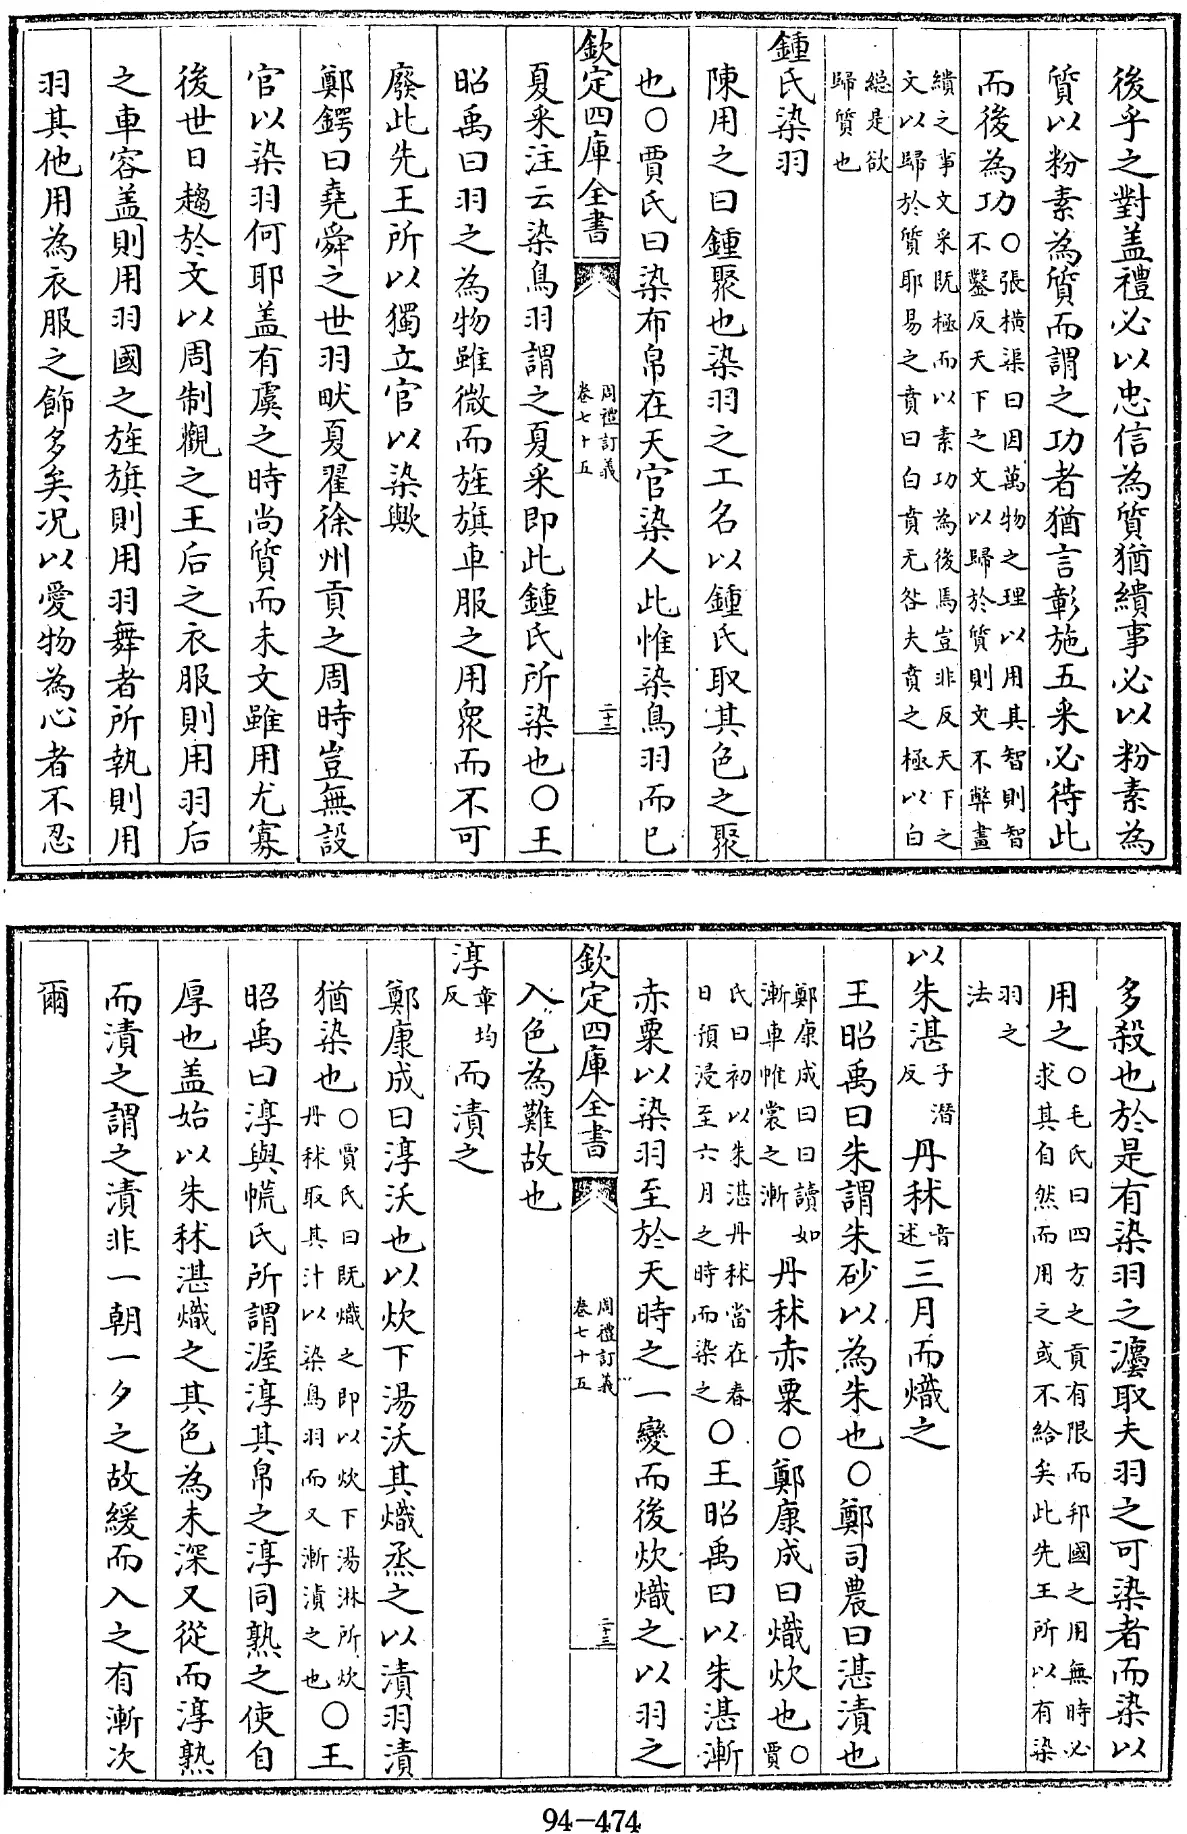 後乎之對盖禮必以忠信為質猶繢事必以粉素為
質以粉素為質而謂之功者猶言彰施五采必待此
而後為功○張橫渠曰因萬物之理以用其智則智
不鑿反天下之文以歸於質則文不弊畫
繢之事文采既極而以素功為後焉豈非反天下之
文以歸於質耶易之賁曰白賁无咎夫賁之極以白
縂是欲
歸質也
鍾氏染羽
陳用之曰鍾聚也染羽之工名以鍾氏取其色之聚
也○賈氏曰染布帛在天官染人此惟染鳥羽而已
欽定四庫全書
周禮訂義
卷七十五
二十三
夏采注云染鳥羽謂之夏采即此鍾氏所染也○王
昭禹曰羽之為物雖微而旌旗車服之用衆而不可
廢此先王所以獨立官以染歟
鄭鍔曰堯舜之世羽畎夏翟徐州貢之周時豈無設
官以染羽何耶盖有虞之時尚質而未文雖用尤寡
後世日趨於文以周制觀之王后之衣服則用羽后
之車容盖則用羽國之旌旗則用羽舞者所執則用
羽其他用為衣服之飾多矣况以愛物為心者不忍
多殺也於是有染羽之灋取夫羽之可染者而染以
用之○毛氏曰四方之貢有限而邦國之用無時必
求其自然而用之或不給矣此先王所以有染
羽之
法
以朱湛子潜反丹秫音述三月而熾之
王昭禹曰朱謂朱砂以為朱也○鄭司農曰湛漬也
鄭康成曰曰讀如
漸車帷裳之漸
丹秫赤粟○鄭康成曰熾炊也○賈
氏曰初以朱湛丹秫當在春
日預浸至六月之時而染之
○王昭禹曰以朱湛漸
赤粟以染羽至於天時之一變而後炊熾之以羽之
欽定四庫全書
周禮訂義
卷七十五
二十三
入色為難故也
淳章均反而漬之
鄭康成曰淳沃也以炊下湯沃其熾烝之以漬羽漬
猶染也○賈氏曰既熾之即以炊下湯淋所炊
丹秫取其汁以染鳥羽而又漸漬之也
○王
昭禹曰淳與㡛氏所謂渥淳其帛之淳同熟之使自
厚也盖始以朱秫湛熾之其色為未深又從而淳熟
而漬之謂之漬非一朝一夕之故緩而入之有漸次
爾
94-474